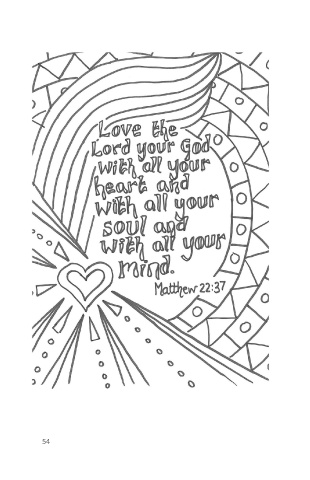 Love the
Lord your God
with all your
heart and
with all your
soul and
with all your
mind.
Matthew 22:37
54